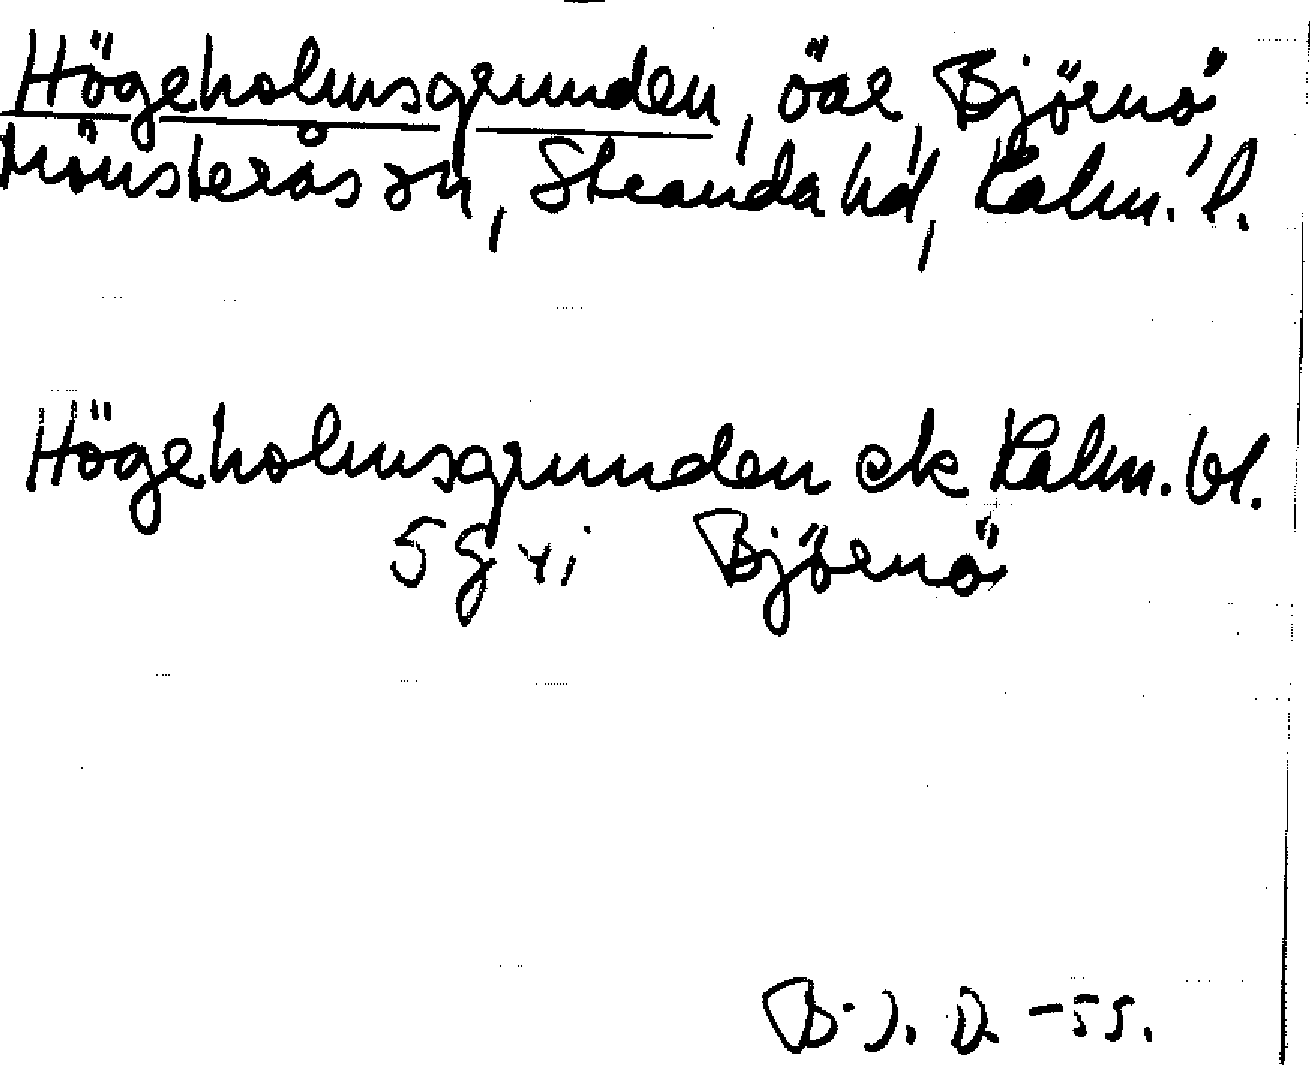 Högeholmsgrunden, öar, Björnö,
Mönsterås sn, Stranda hd, Kalm. l.
Högeholmsgrunden ek Kalm. bl.
5g Björnö
B.J.D. -55.